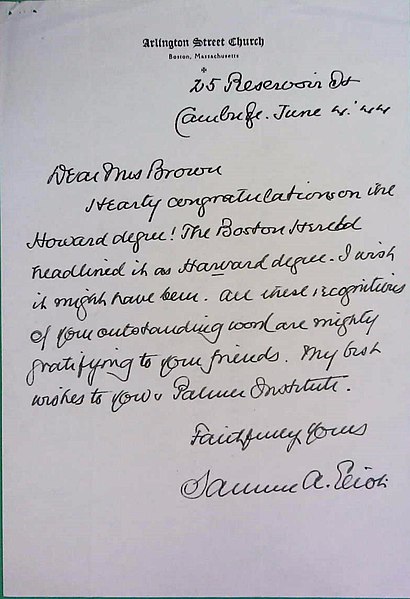 Arlington Street Church
Boston, Massachusetts
25 Reservoir St
Cambridge. June 4. '44
Dear Mrs Brown
Hearty congratulations on the
Howard degree! The Boston Herald
headlined it as Harvard degree. I wish
it might have been. All these recognitions
of your outstanding work are mighty
gratifying to your friends. My best
wishes to you & Palmer Institute.
Faithfully Yours
Samuel A. Eliot